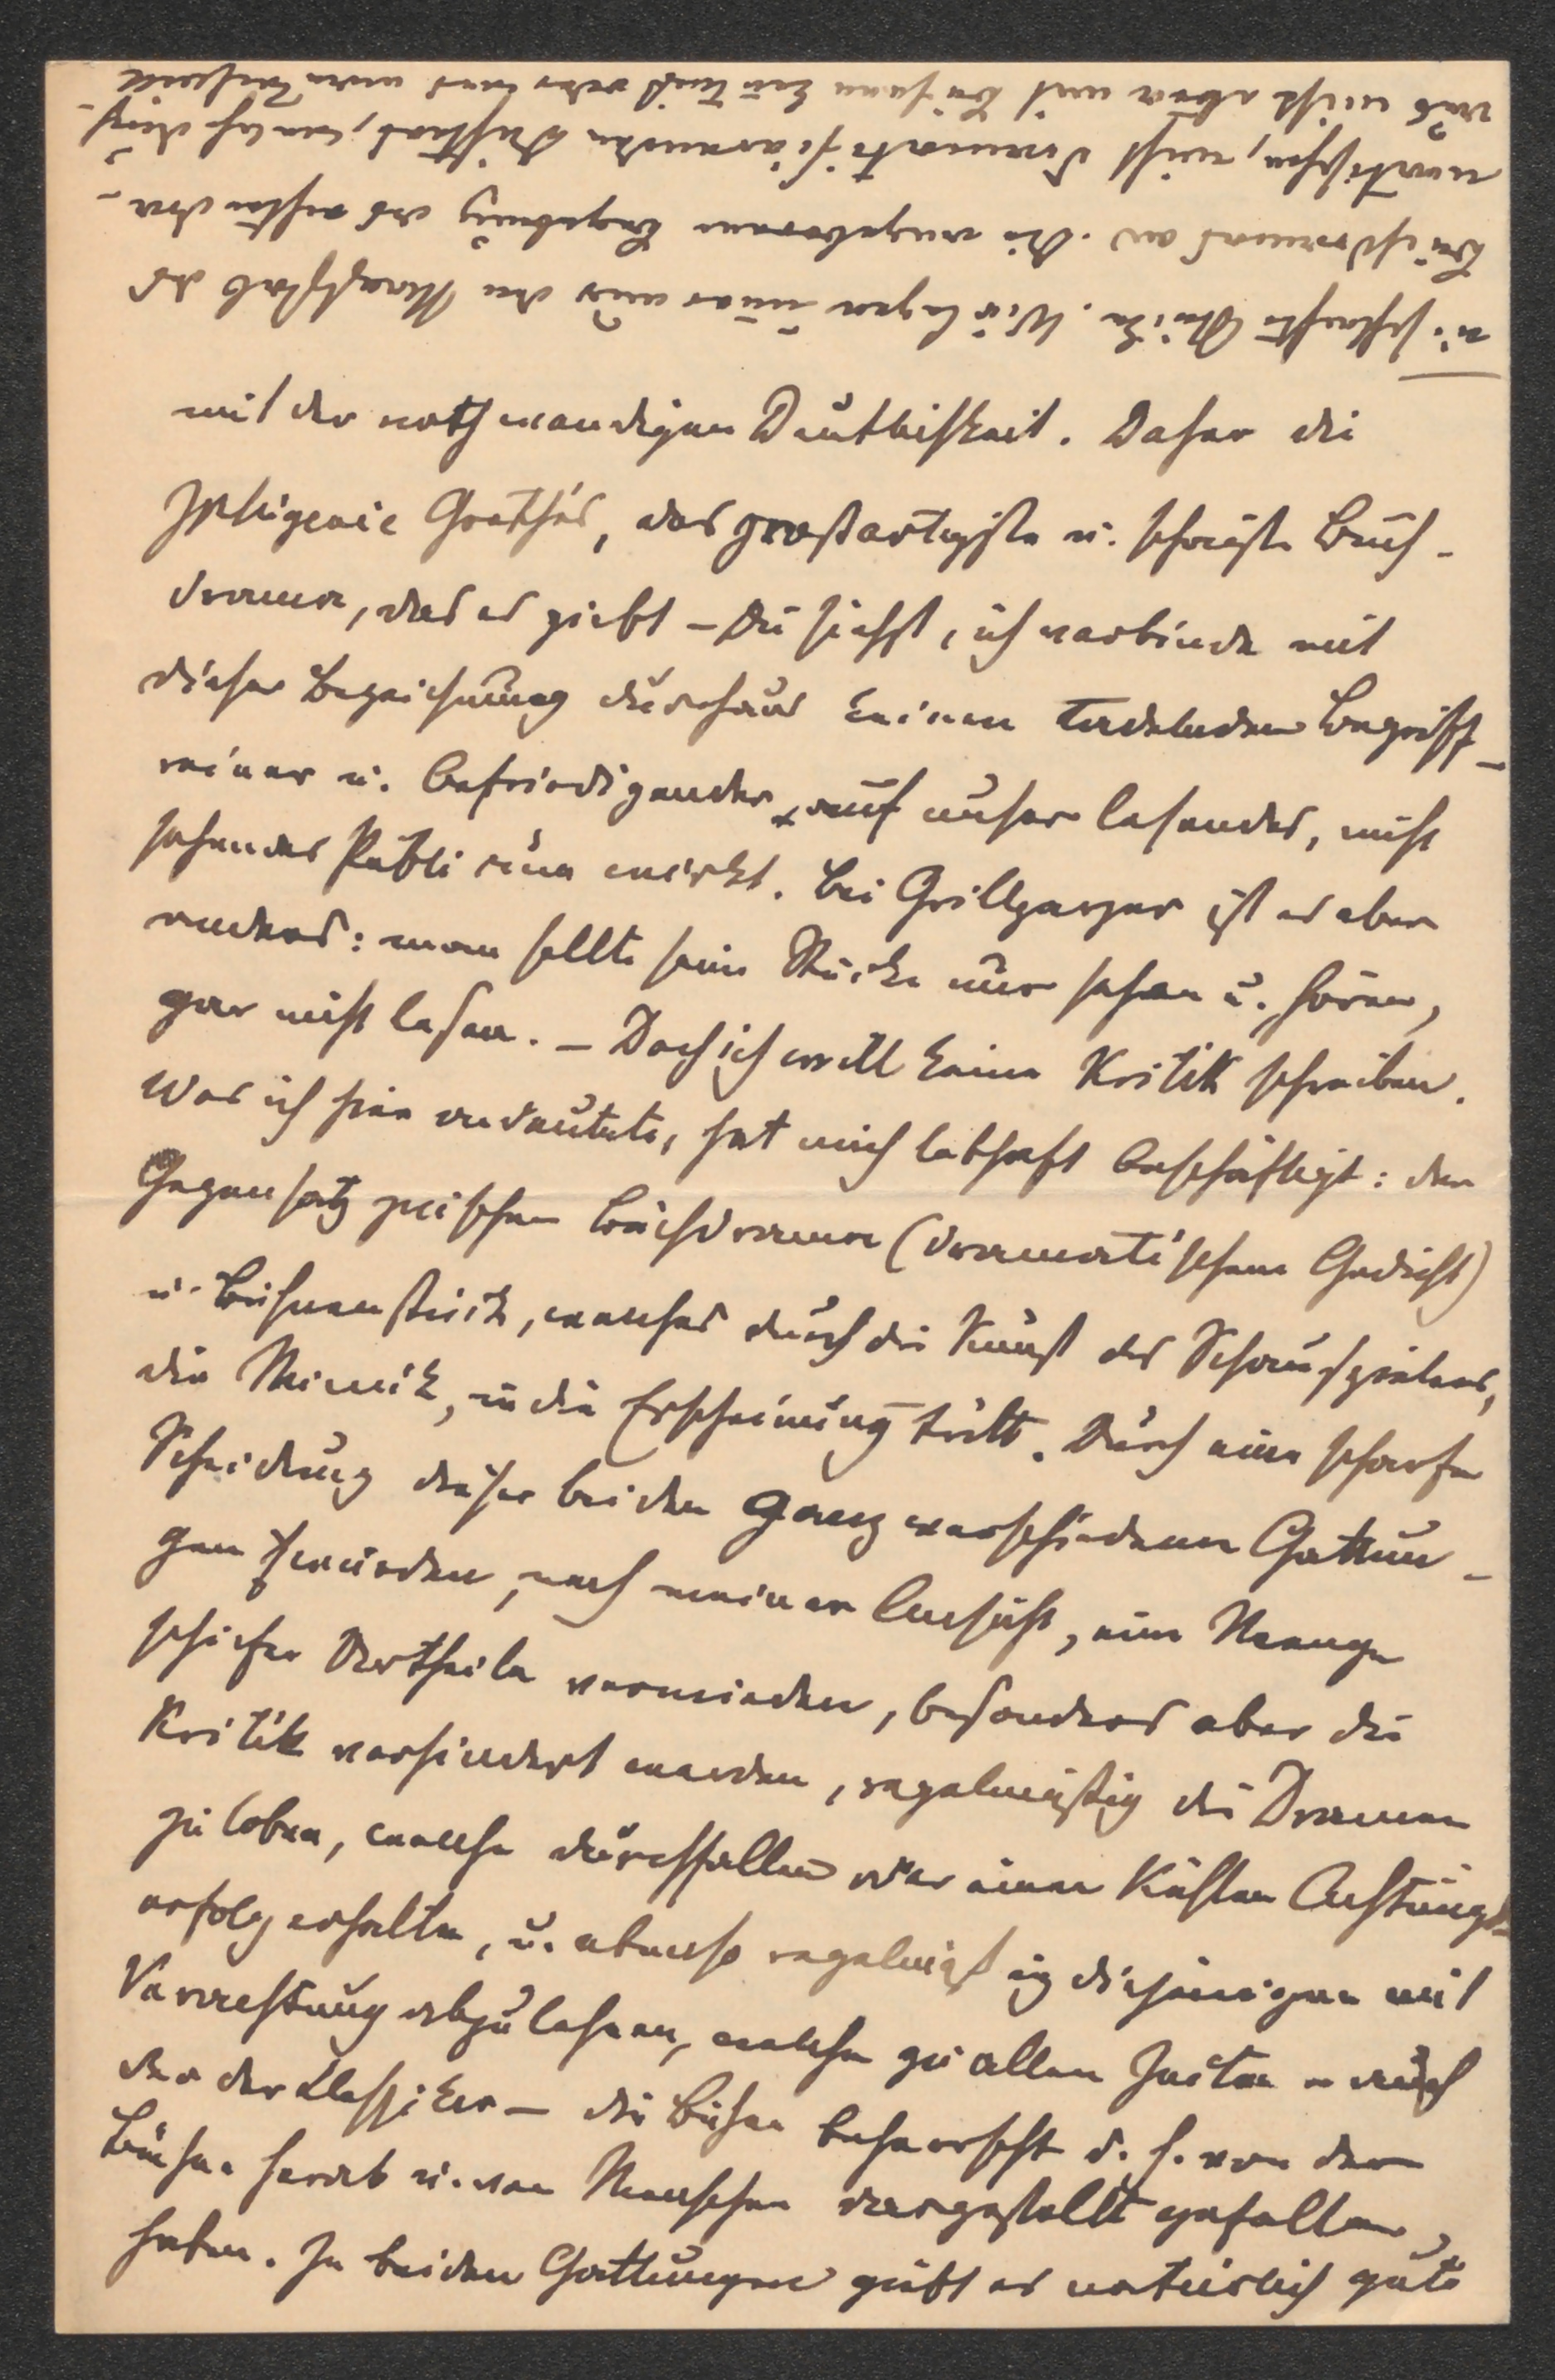 mit der nothwendigen Deutlichkeit. Daher die
Iphigenie Goethe's, das großartigste u. schönste Buch-
drama, das es giebt – Du siehst, ich verbinde mit
dieser Bezeichnung durchaus keinen tadelnden Begriff –
reiner u. befriedigender auf unser lesendes, nicht
sehendes Publicum wirkt. Bei Grillparzer ist es aber
anders: man sollte seine Stücke nur sehen u. hören,
gar nicht lesen. – Doch ich will keine Kritik schreiben.
Was ich hier andeutete, hat mich lebhaft beschäftigt: der
Gegensatz zwischen Buchdrama (dramatischem Gedicht)
u. Bühnenstück, welches durch die Kunst des Schauspielers,
die Mimik, in die Erscheinung tritt. Durch eine scharfe
Scheidung dieser beiden ganz verschiedenen Gattun-
gen würden, nach meiner Ansicht, eine Menge
schiefer Urtheile vermieden, besonders aber die
Kritik verhindert werden, regelmäßig die Dramen
zu loben, welche durchfallen oder einen kühlen Achtungs-
erfolg erhalten, u. ebenso regelmäßig diejenigen mit
Verachtung abzulehnen, welche zu allen Zeiten – auch
der der Klassiker – die Bühne beherrscht d. h. von der
Bühne herab u. von Menschen dargestellt gefallen
haben. In beiden Gattungen giebt es natürlich gute
u. schlechte Stücke. Wir legen immer nur den Maßstab des
Buchdramas an. Die angeborene Begabung des echten dra-
matischen, nicht dramatisierenden Dichters, welch
das nicht aber mit